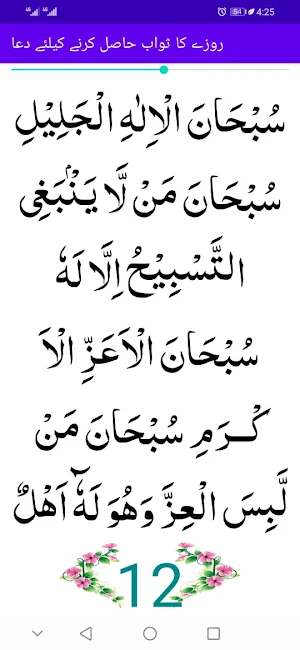 4:25
54
روزے کا ثواب حاصل کرنے کیلئے دعا
سُبْحَانَ الْاِلٰهِ الْجَلِيْلِ
سُبْحَانَ مَنْ لَّا يَنْۢبَغِى
التَّسْبِيْحُ اِلَّا لَهٗ
سُبْحَانَ الْاَعَزِّ الْاَ
كْـرَمِ سُبْحَانَ مَنْ
لَّبِسَ الْعِزَّ وَهُوَ لَهٗٓ اَهْلٌ
12